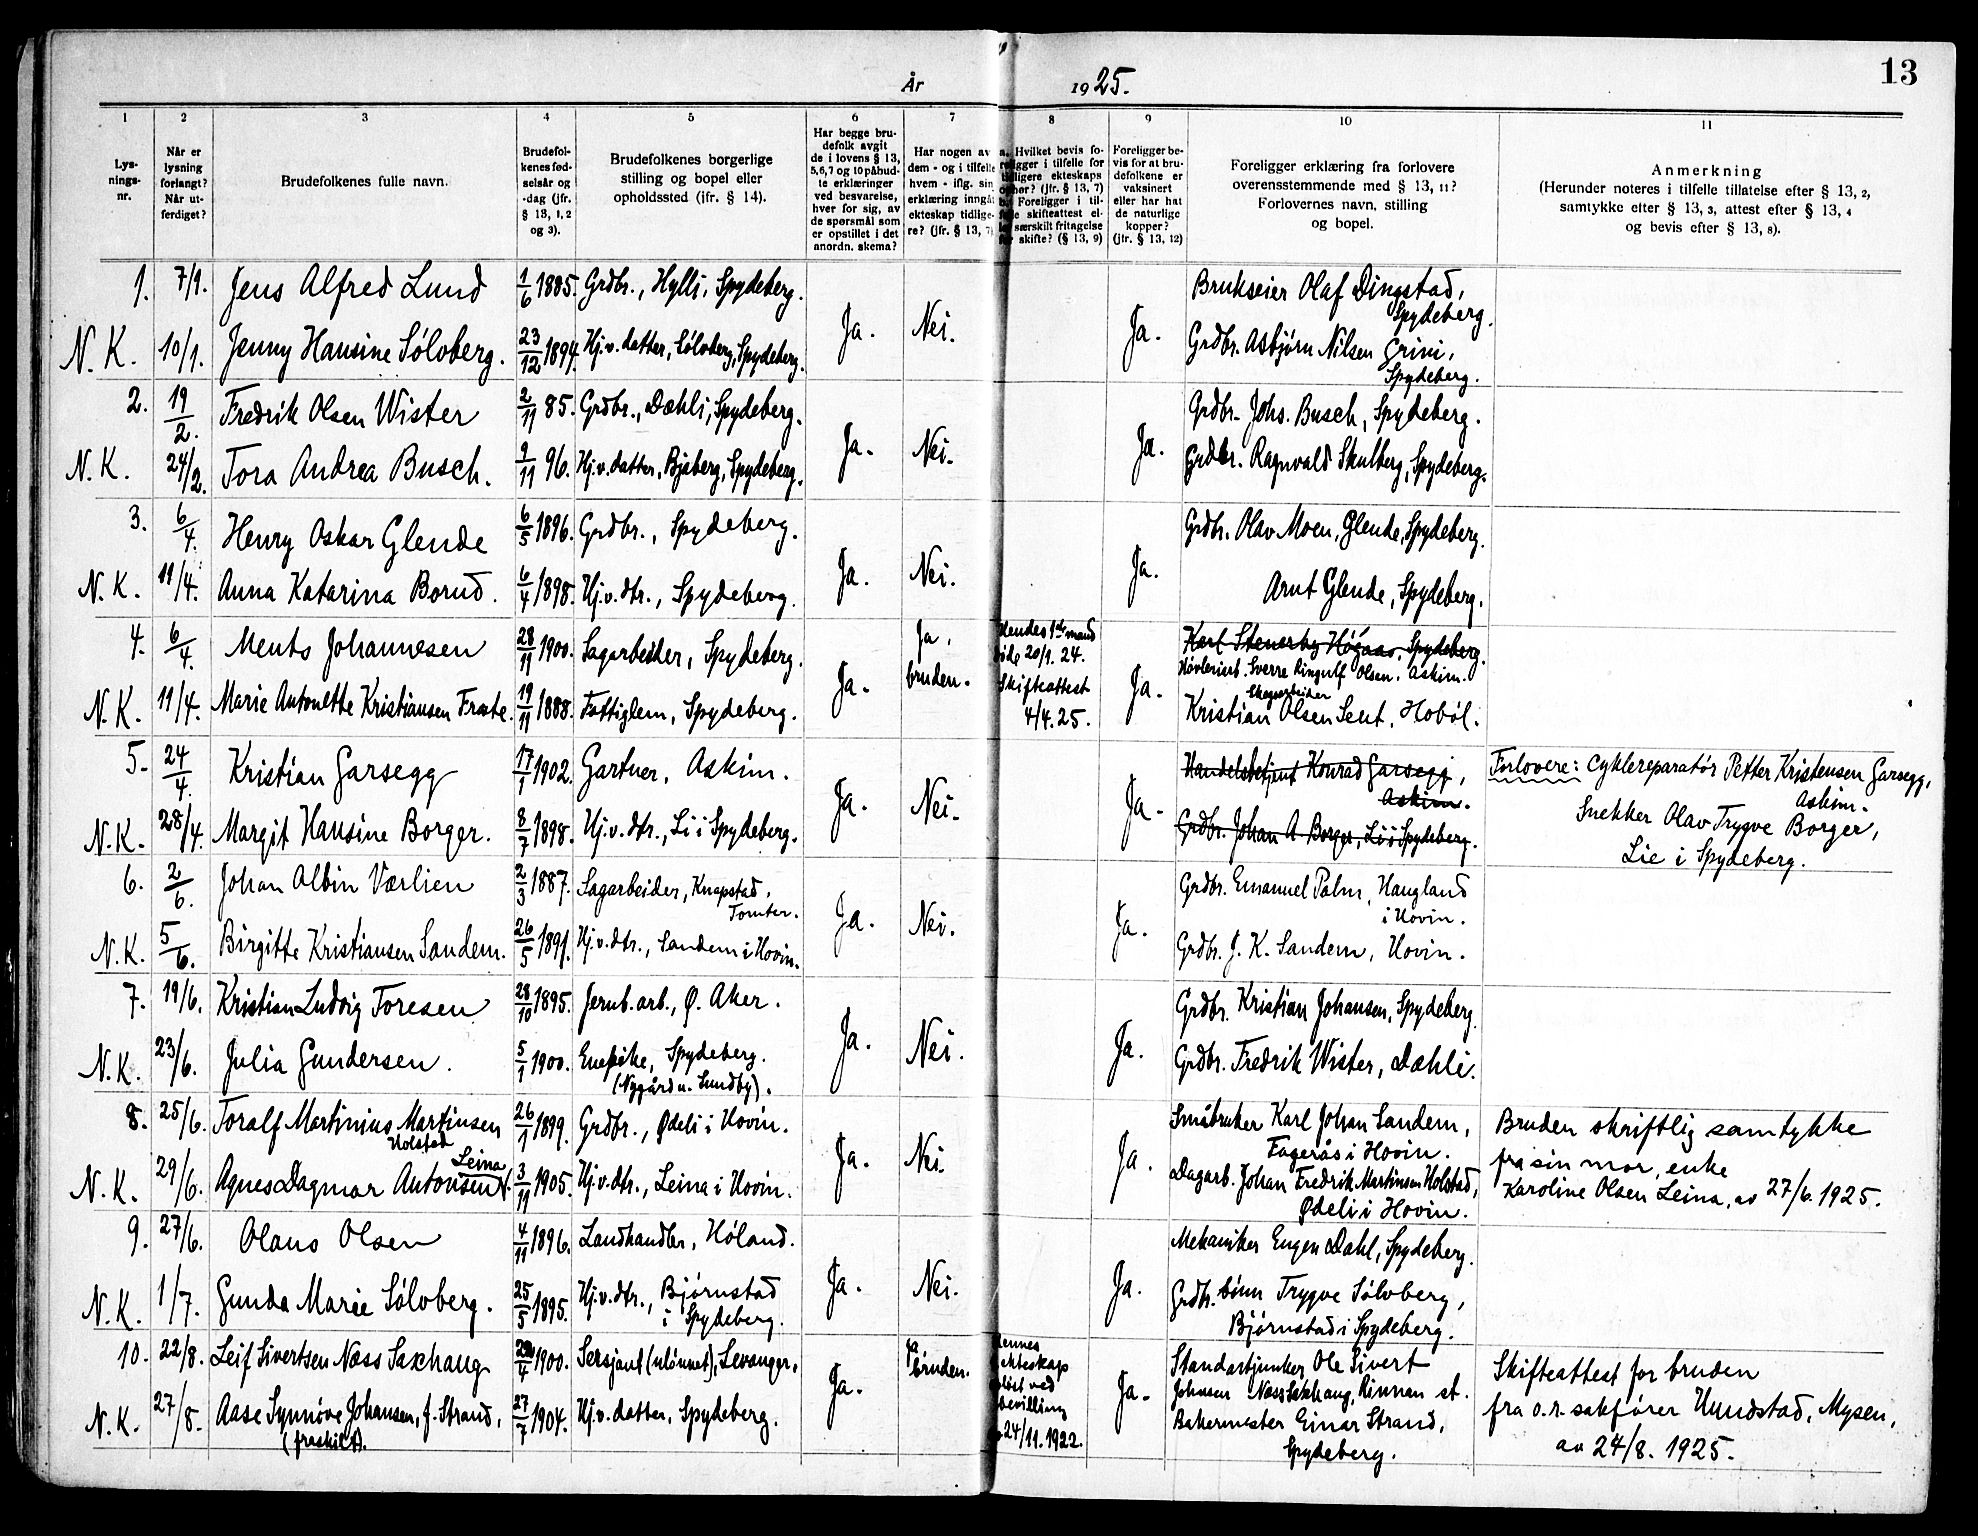 13
År 1925.
1 2 3 4 5 6 7 8 9 10 11
Lys-
nings-
nr.
Når er
lysning
forlangt?
Når ut-
ferdiget?
Brudefolkenes fulle navn.
Brudefol-
kenes fød-
selsår og
-dag (jfr.
§ 13, 1, 2
og 3).
Brudefolkenes borgerlige
stilling og bopel eller
opholdssted (jfr. § 14).
Har begge bru-
defolk avgit
de i lovens § 13,
5, 6, 7 og 10 påbud-
te erklæringer
ved besvarelse,
hver for sig, av
de spørsmål som
er opstillet i det
anordn. skema?
Har nogen av
dem - og i tilfelle
hvem - iflg. sin
erklæring inngåt
ekteskap tidlige-
re? (jfr. § 13, 7)
Hvilket bevis fo-
religger i tilfelle for
tidligere ekteskaps
ophør? (jfr. § 13, 7)
Foreligger i til-
felle skifteattest el-
særskilt fritagelse
for skifte? (§ 13, 9)
Foreligger be-
vis for at bru-
defolkene er
vaksinert
eller har hat
de naturlige
kopper?
(jfr. § 13, 12)
Foreligger erklæring fra forlovere
overensstemmende med § 13, 11?
Forlovernes navn, stilling
og bopel.
Anmerkning
(Herunder noteres i tilfelle tillatelse efter § 13, 2,
samtykke efter § 13, 3, attest efter § 13, 4
og bevis efter § 13, 8).
1. 7/1. Jens Alfred Lund 1/6 1885. Grdbr., Hylli, Spydeberg. Ja. Nei. Ja. Brukseier Olaf Dingstad,
Spydeberg.
N. K. 10/1. Jenny Hansine Sölvberg. 23/12 1894. Hj.v. datter, Sölvberg, Spydeberg. Grdbr. Asbjørn Nilsen Grini,
Spydeberg.
2. 19/2. Fredrik Olsen Wister 2/11 85. Grdbr., Dæhli, Spydeberg. Ja. Nei. Ja. Grdbr. Johs. Busch, Spydeberg.
N. K. 24/2. Tora Andrea Busch. 9/11 96. Hj.v. datter, Bjaberg, Spydeberg. Grdbr. Ragnvald Skulberg, Spydeberg.
3. 6/4. Henry Oskar Glende 6/5 1896. Grdbr., Spydeberg. Ja. Nei. Ja. Grdbr. Olav Moen, Glende, Spydeberg.
N. K. 11/4. Anna Katarina Borud. 6/4 1898. Hj.v. dtr., Spydeberg. Arnt Glende, Spydeberg.
4. 6/4. Ments Johannesen 28/11 1900. Sagarbeider, Spydeberg. Ja. Ja, bruden. Hendes 1ste mand
døde 20/1. 24.
Skifteattest
4/4. 25. Ja. Karl Stenerby Högaas, Spydeberg.
Høvleriarb. Sverre Ringulf Olsen, Askim.
Skogsarbeider
N. K. 11/4. Marie Antonette Kristiansen Frøte. 19/11 1888. Fattiglem, Spydeberg. Kristian Olsen Sent, Hobøl.
5. 24/4. Kristian Garsegg 17/1 1902. Gartner, Askim. Ja. Nei. Ja. Handelsbetjent Konrad Garsegg,
Askim.
Forlovere: Cyklereparatör Petter Kristensen Garsegg,
Askim.
N. K. 28/4. Margit Hansine Borger. 8/7 1898. Hj.v. dtr., Li i Spydeberg. Grdbr. Johan A. Borger, Li i Spydeberg.
Snekker Olav Trygve Borger,
Lie i Spydeberg.
6. 2/6. Johan Albin Værlien 2/3 1887. Sagarbeider, Knapstad,
Tomter. Ja. Nei. Ja. Grdbr. Emanuel Palm, Haugland
i Hovin.
N. K. 5/6. Birgitte Kristiansen Sandem. 26/5 1891. Hj.v. dtr., Sandem i Hovin. Grdbr. J. K. Sandem, Hovin.
7. 19/6. Kristian Ludvig Toresen 28/10 1895. Jernb. arb., Ø. Aker. Ja. Nei. Ja. Grdbr. Kristian Johansen, Spydeberg.
N. K. 23/6. Julia Gundersen. 5/1 1900. Enepike, Spydeberg.
(Nygård u. Lundby). Grdbr. Fredrik Wister, Dæhli.
8. 25/6. Toralf Martinius Martinsen
Holstad 26/1 1899. Grdbr., Ødeli i Hovin. Ja. Nei. Ja. Småbruker Karl Johan Sandem,
Fagerås i Hovin.
Bruden skriftlig samtykke
fra sin mor, enke
Karoline Olsen Leina, av 27/6. 1925.
N. K. 29/6. Agnes Dagmar Antonsen Leina. 3/11 1905. Hj.v. dtr., Leina i Hovin. Dagarb. Johan Fredrik Martinsen Holstad,
Ødeli i Hovin.
9. 27/6. Olaus Olsen 4/11 1896. Landhandler, Høland. Ja. Nei. Ja. Mekaniker Eugen Dahl, Spydeberg.
N. K. 1/7. Gunda Marie Sölvberg. 25/5 1895. Hj.v. dtr., Bjørnstad
i Spydeberg. Grdbr. sönn Trygve Sölvberg,
Bjørnstad i Spydeberg.
10. 22/8. Leif Sivertsen Næss Saxhaug /4 1900. Sersjant (ulönnet), Levanger. Ja. Ja bruden. Hennes
ekteskap
opløst ved
bevilling
av 24/11. 1922. Ja. Standartjunker Ole Sivert
Johnsen Næss Saxhaug, Rinnan st.
Skifteattest for bruden
fra o.r. sakfører Hundstad, Mysen,
av 24/8. 1925.
N. K. 27/8. Aase Synnöve Johansen, f. Strand,
(fraskilt). 27/7 1904. Hj.v. datter, Spydeberg. Bakermester Einar Strand,
Spydeberg.